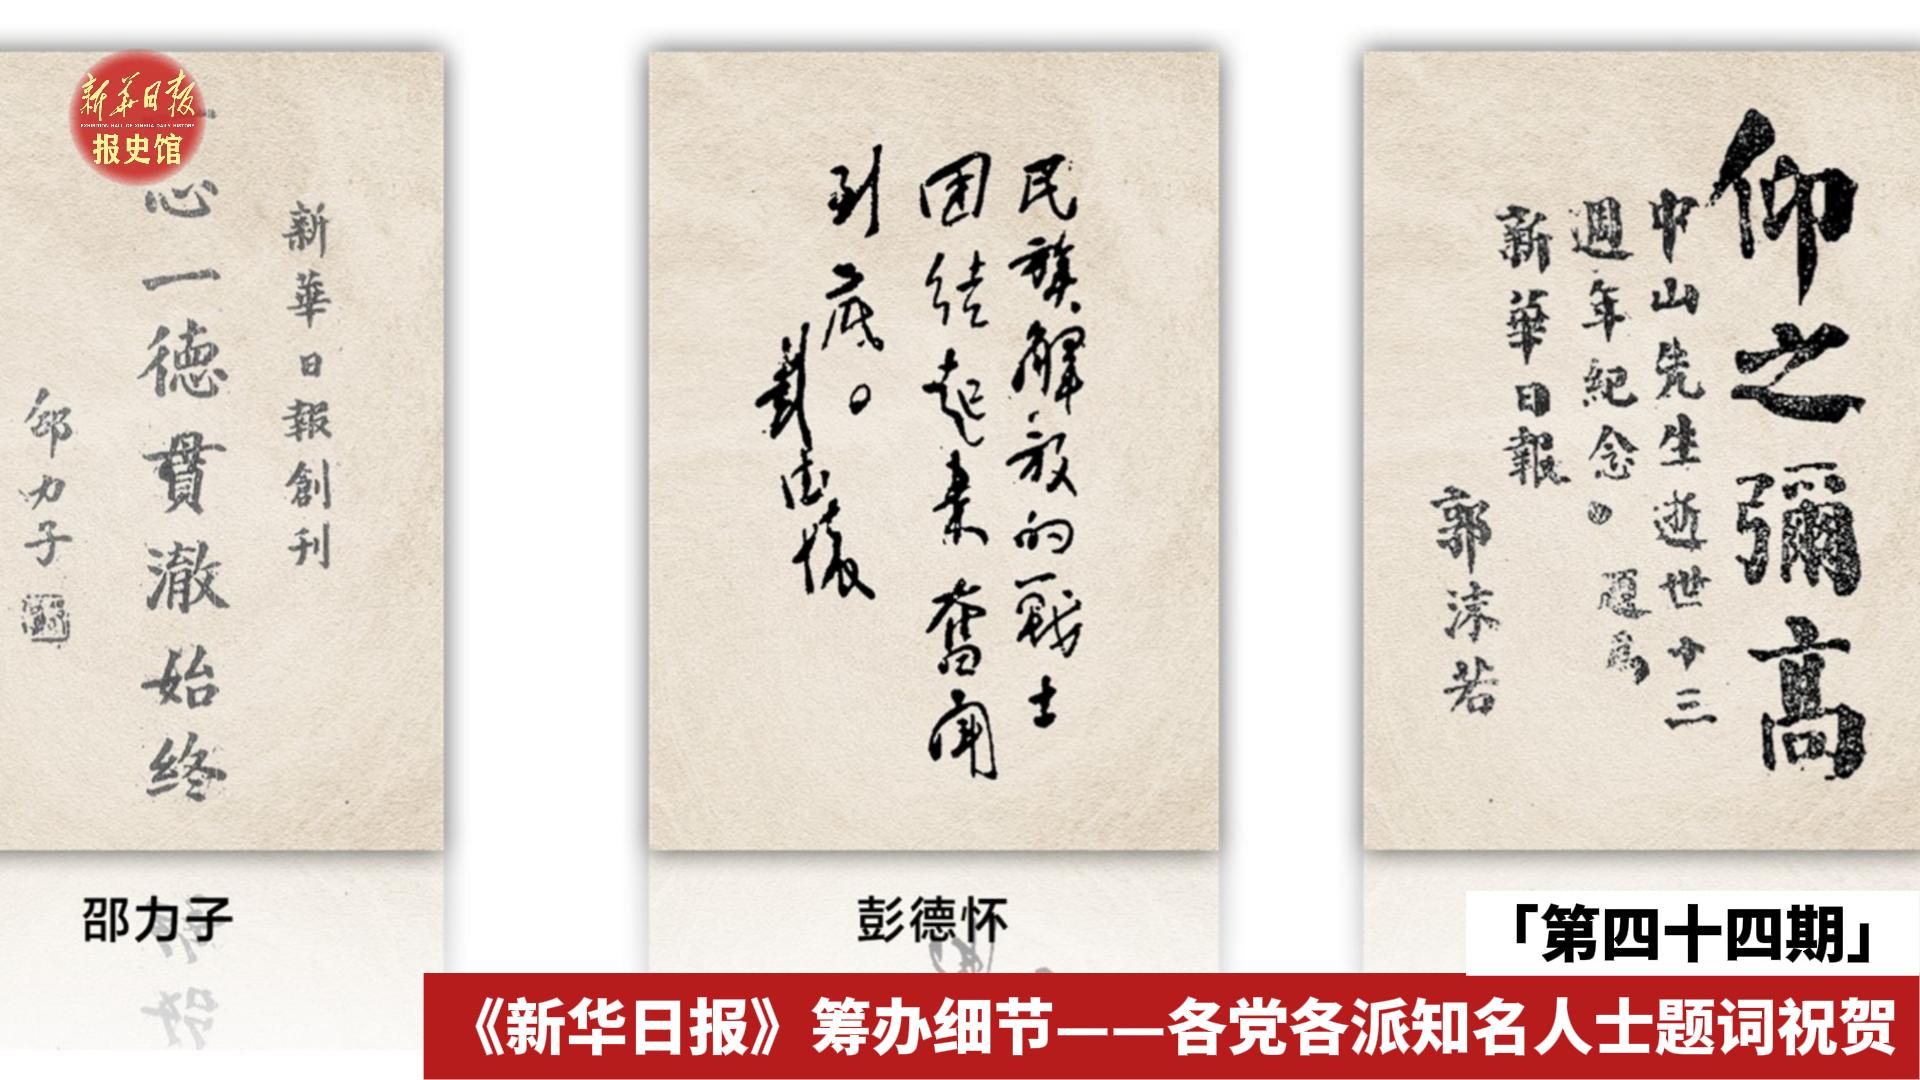 新华日报
EXHIBITION HALL OF XINHUA DAILY HISTORY
报史馆
新華日報創刊
心一德貫澈始終
邵力子
邵力子
民族解放的戰士
团结起来奮闘
到底。
彭德懷
彭德怀
仰之彌高
中山先生逝世十三
週年紀念。題爲
新華日報
郭沫若
「第四十四期」
《新华日报》筹办细节——各党各派知名人士题词祝贺